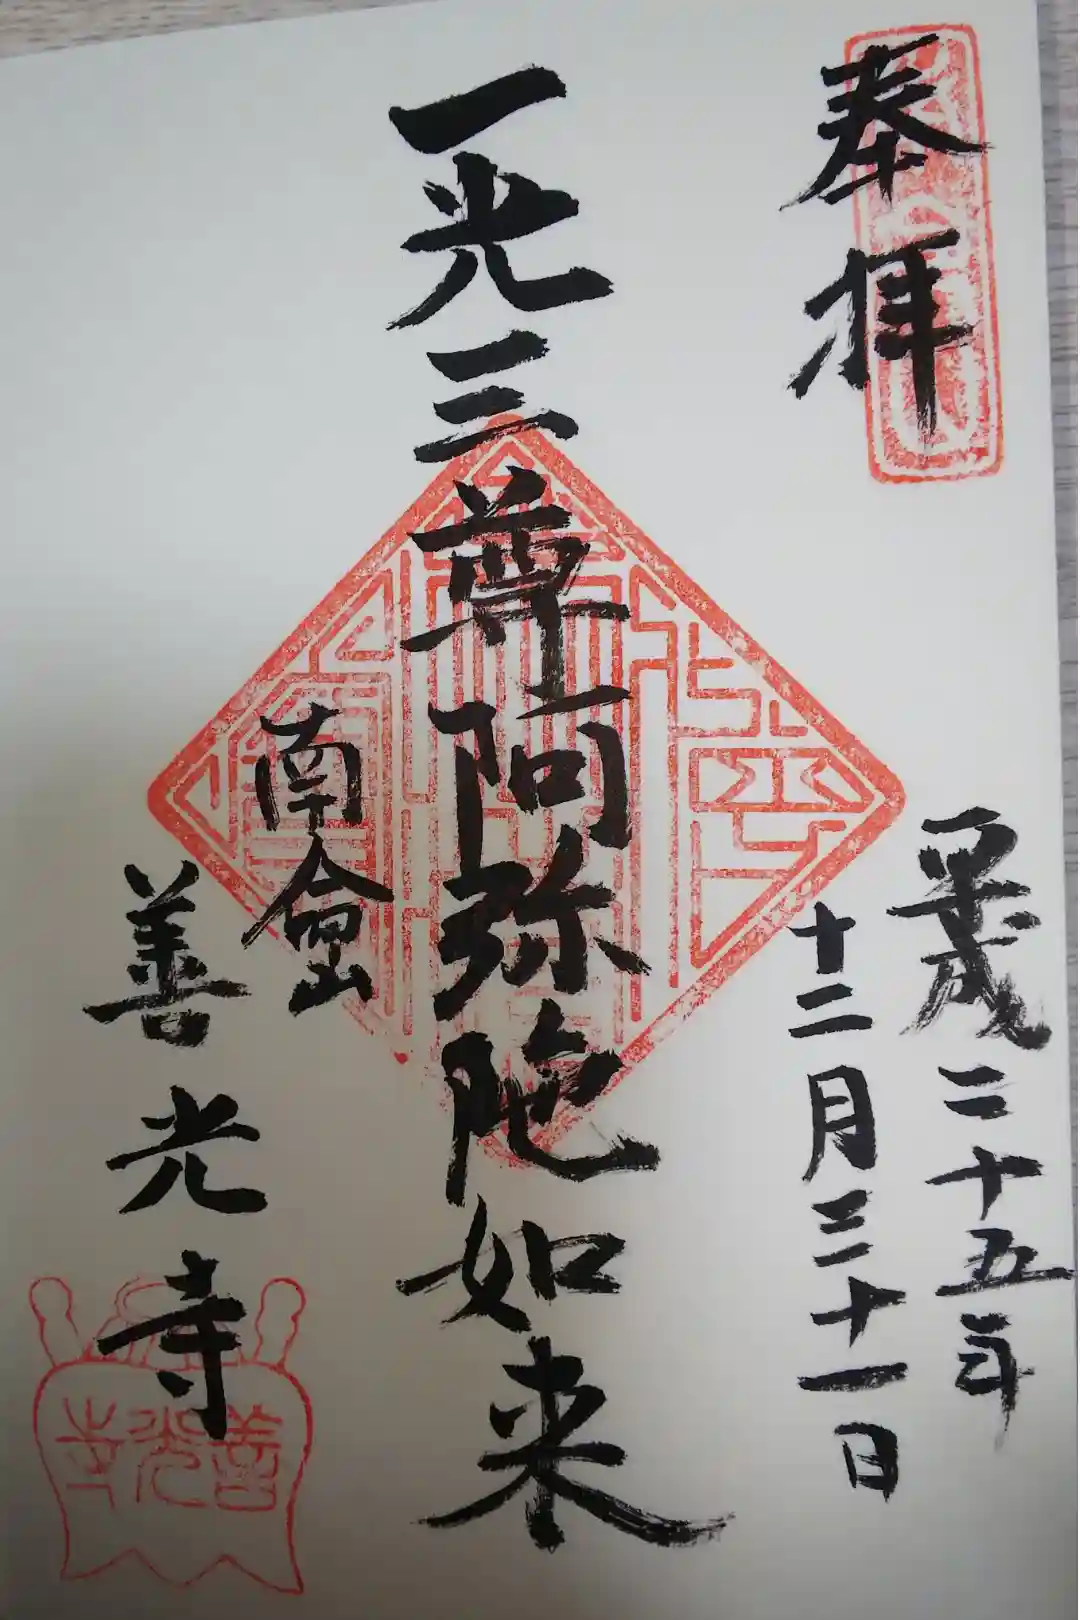 奉拝
平成二十五年
十二月三十一日
一光三尊阿弥陀如来
南命山
善光寺
善光寺